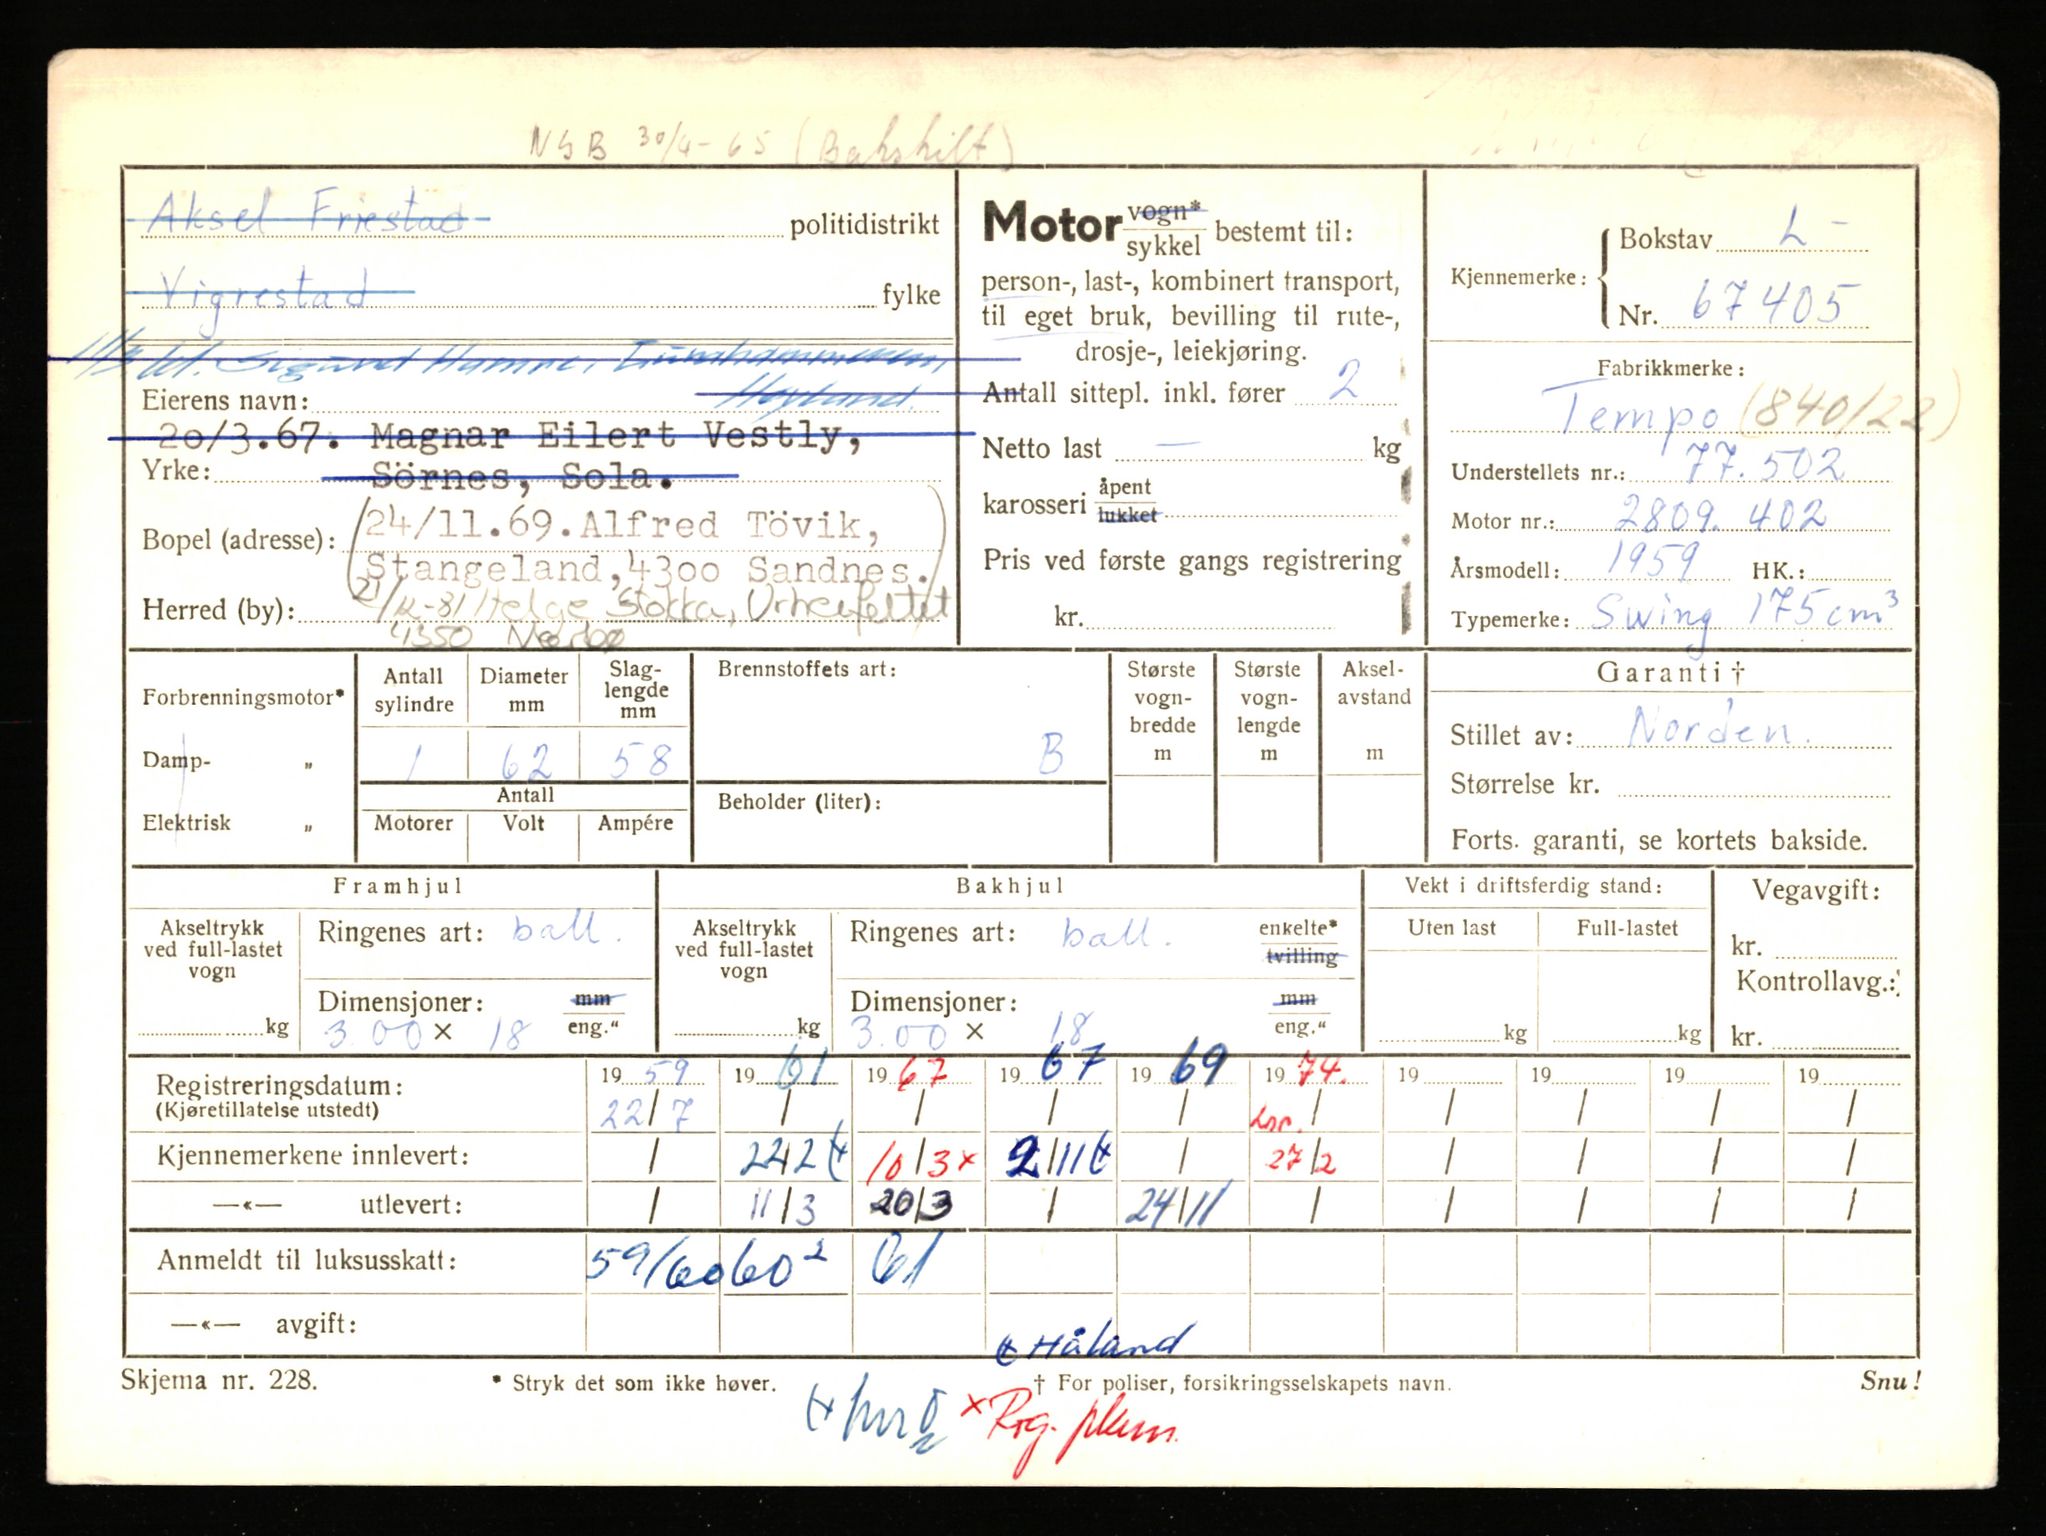 NSB 30/4-65 (Bakskilt)
Aksel Friestad politidistrikt
Vigrestad fylke
11/3 61. Sigurd Hamre,
Høyland.
Eierens navn:
20/3.67. Magnar Eilert Vestly,
Yrke: Sörnes, Sola.
24/11.69. Alfred Tövik,
Bopel (adresse):
Stangeland, 4300 Sandnes.
Herred (by): 21/12-81 Helge Stokka, Orheifeltet
4350 Nærbø
Motor vogn*
sykkel bestemt til:
person-, last-, kombinert transport,
til eget bruk, bevilling til rute-,
drosje-, leiekjøring.
Antall sittepl. inkl. fører 2
Netto last — kg
karosseri åpent
lukket
Pris ved første gangs registrering
kr.
Kjennemerke: Bokstav L-
Nr. 67405
Fabrikkmerke:
Tempo (840/22)
Understellets nr.: 77.502
Motor nr.: 2809.402
Årsmodell: 1959 HK.:
Typemerke: Swing 175cm³
Forbrenningsmotor*
Damp- „
Elektrisk „
Antall sylindre Diameter mm Slag-lengde mm
1 62 58
Antall
Motorer Volt Ampére
Brennstoffets art:
B
Beholder (liter):
Største vogn-bredde m
Største vogn-lengde m
Aksel-avstand m
Garanti †
Stillet av: Norden.
Størrelse kr.
Forts. garanti, se kortets bakside.
Framhjul
Akseltrykk ved full-lastet vogn
kg
Ringenes art: ball.
Dimensjoner: mm
3.00 × 18 eng.“
Bakhjul
Akseltrykk ved full-lastet vogn
kg
Ringenes art: ball. enkelte*
tvilling
Dimensjoner: mm
3.00 × 18 eng.“
Vekt i driftsferdig stand:
Uten last Full-lastet
kg kg
Vegavgift:
kr.
Kontrollavg.:
kr.
Registreringsdatum: 19 59 19 61 19 67 19 67 19 69 19 74. 19 19 19 19
(Kjøretillatelse utstedt) 22/7 / / / / / / / / /
Kjennemerkene innlevert: / 24/2 10/3 x 2/11 / 27/2 / / / /
—«— utlevert: / 11/3 20/3 / 24/11 / / / / /
Anmeldt til luksusskatt: 59/60 60² 61
—«— avgift:
Håland
Skjema nr. 228. * Stryk det som ikke høver. † For poliser, forsikringsselskapets navn. Snu!
x Reg. plem.